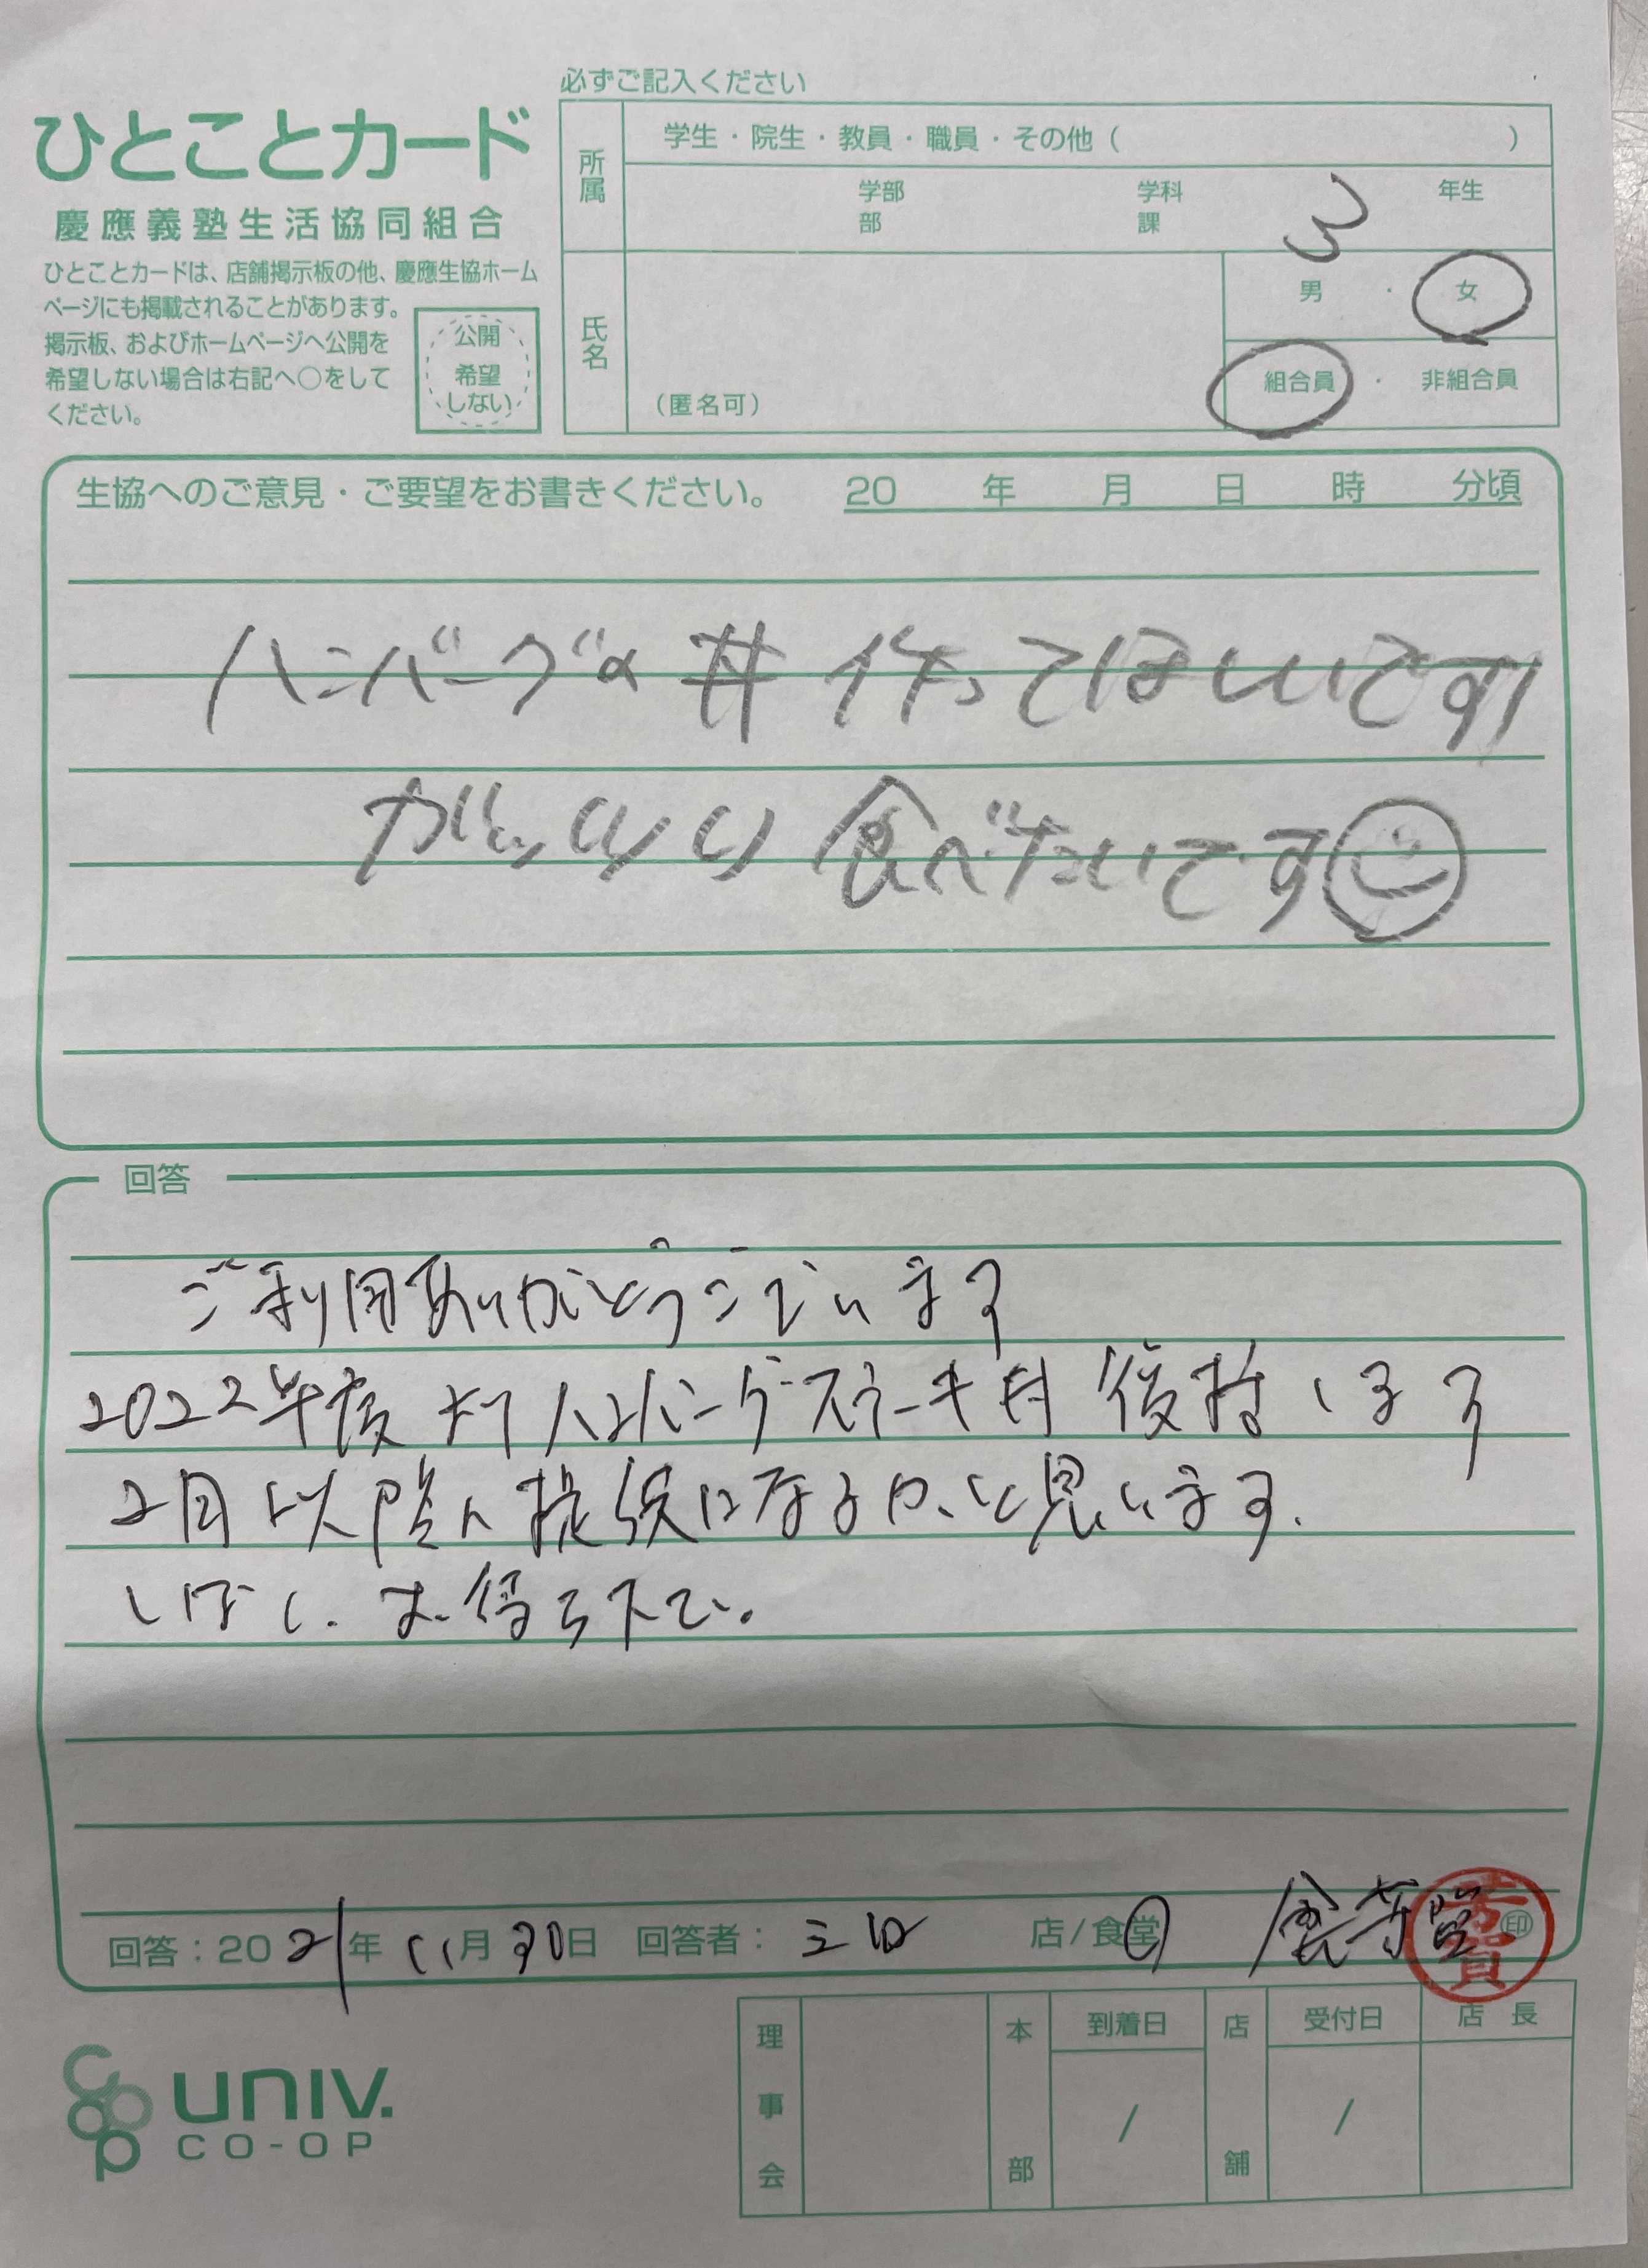 必ずご記入ください
ひとことカード
慶應義塾生活協同組合
ひとことカードは、店舗掲示板の他、慶應生協ホーム
ページにも掲載されることがあります。
掲示板、およびホームページへ公開を
希望しない場合は右記へ○をして
ください。
公開
希望
しない
所属
学生・院生・教員・職員・その他（　）
学部 学科 3 年生
部 課
氏名
（匿名可）
男・女
組合員・非組合員
生協へのご意見・ご要望をお書きください。 20 年 月 日 時 分頃
ハンバーグの丼作ってほしいです!
がっつり食べたいです
回答
ご利用ありがとうございます
2022年度よりハンバーグステーキ丼 します
2月以降に提供になるかと思います。
しばしお待ち下さい。
回答：2021年11月30日 回答者： 三田 店/食堂
芳賀
印
理事会
本部
到着日
/
店舗
受付日
/
店長
univ.
CO-OP